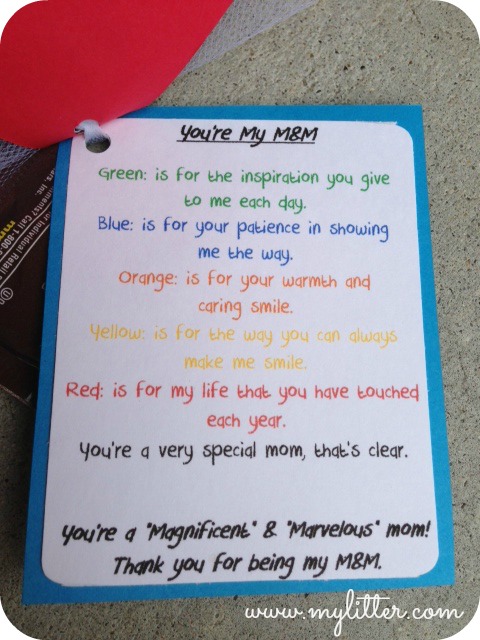 You're My M&M
Green: is for the inspiration you give
to me each day.
Blue: is for your patience in showing
me the way.
Orange: is for your warmth and
caring smile.
Yellow: is for the way you can always
make me smile.
Red: is for my life that you have touched
each year.
You're a very special mom, that's clear.
You're a "Magnificent" & "Marvelous" mom!
Thank you for being my M&M.
www.mylitter.com